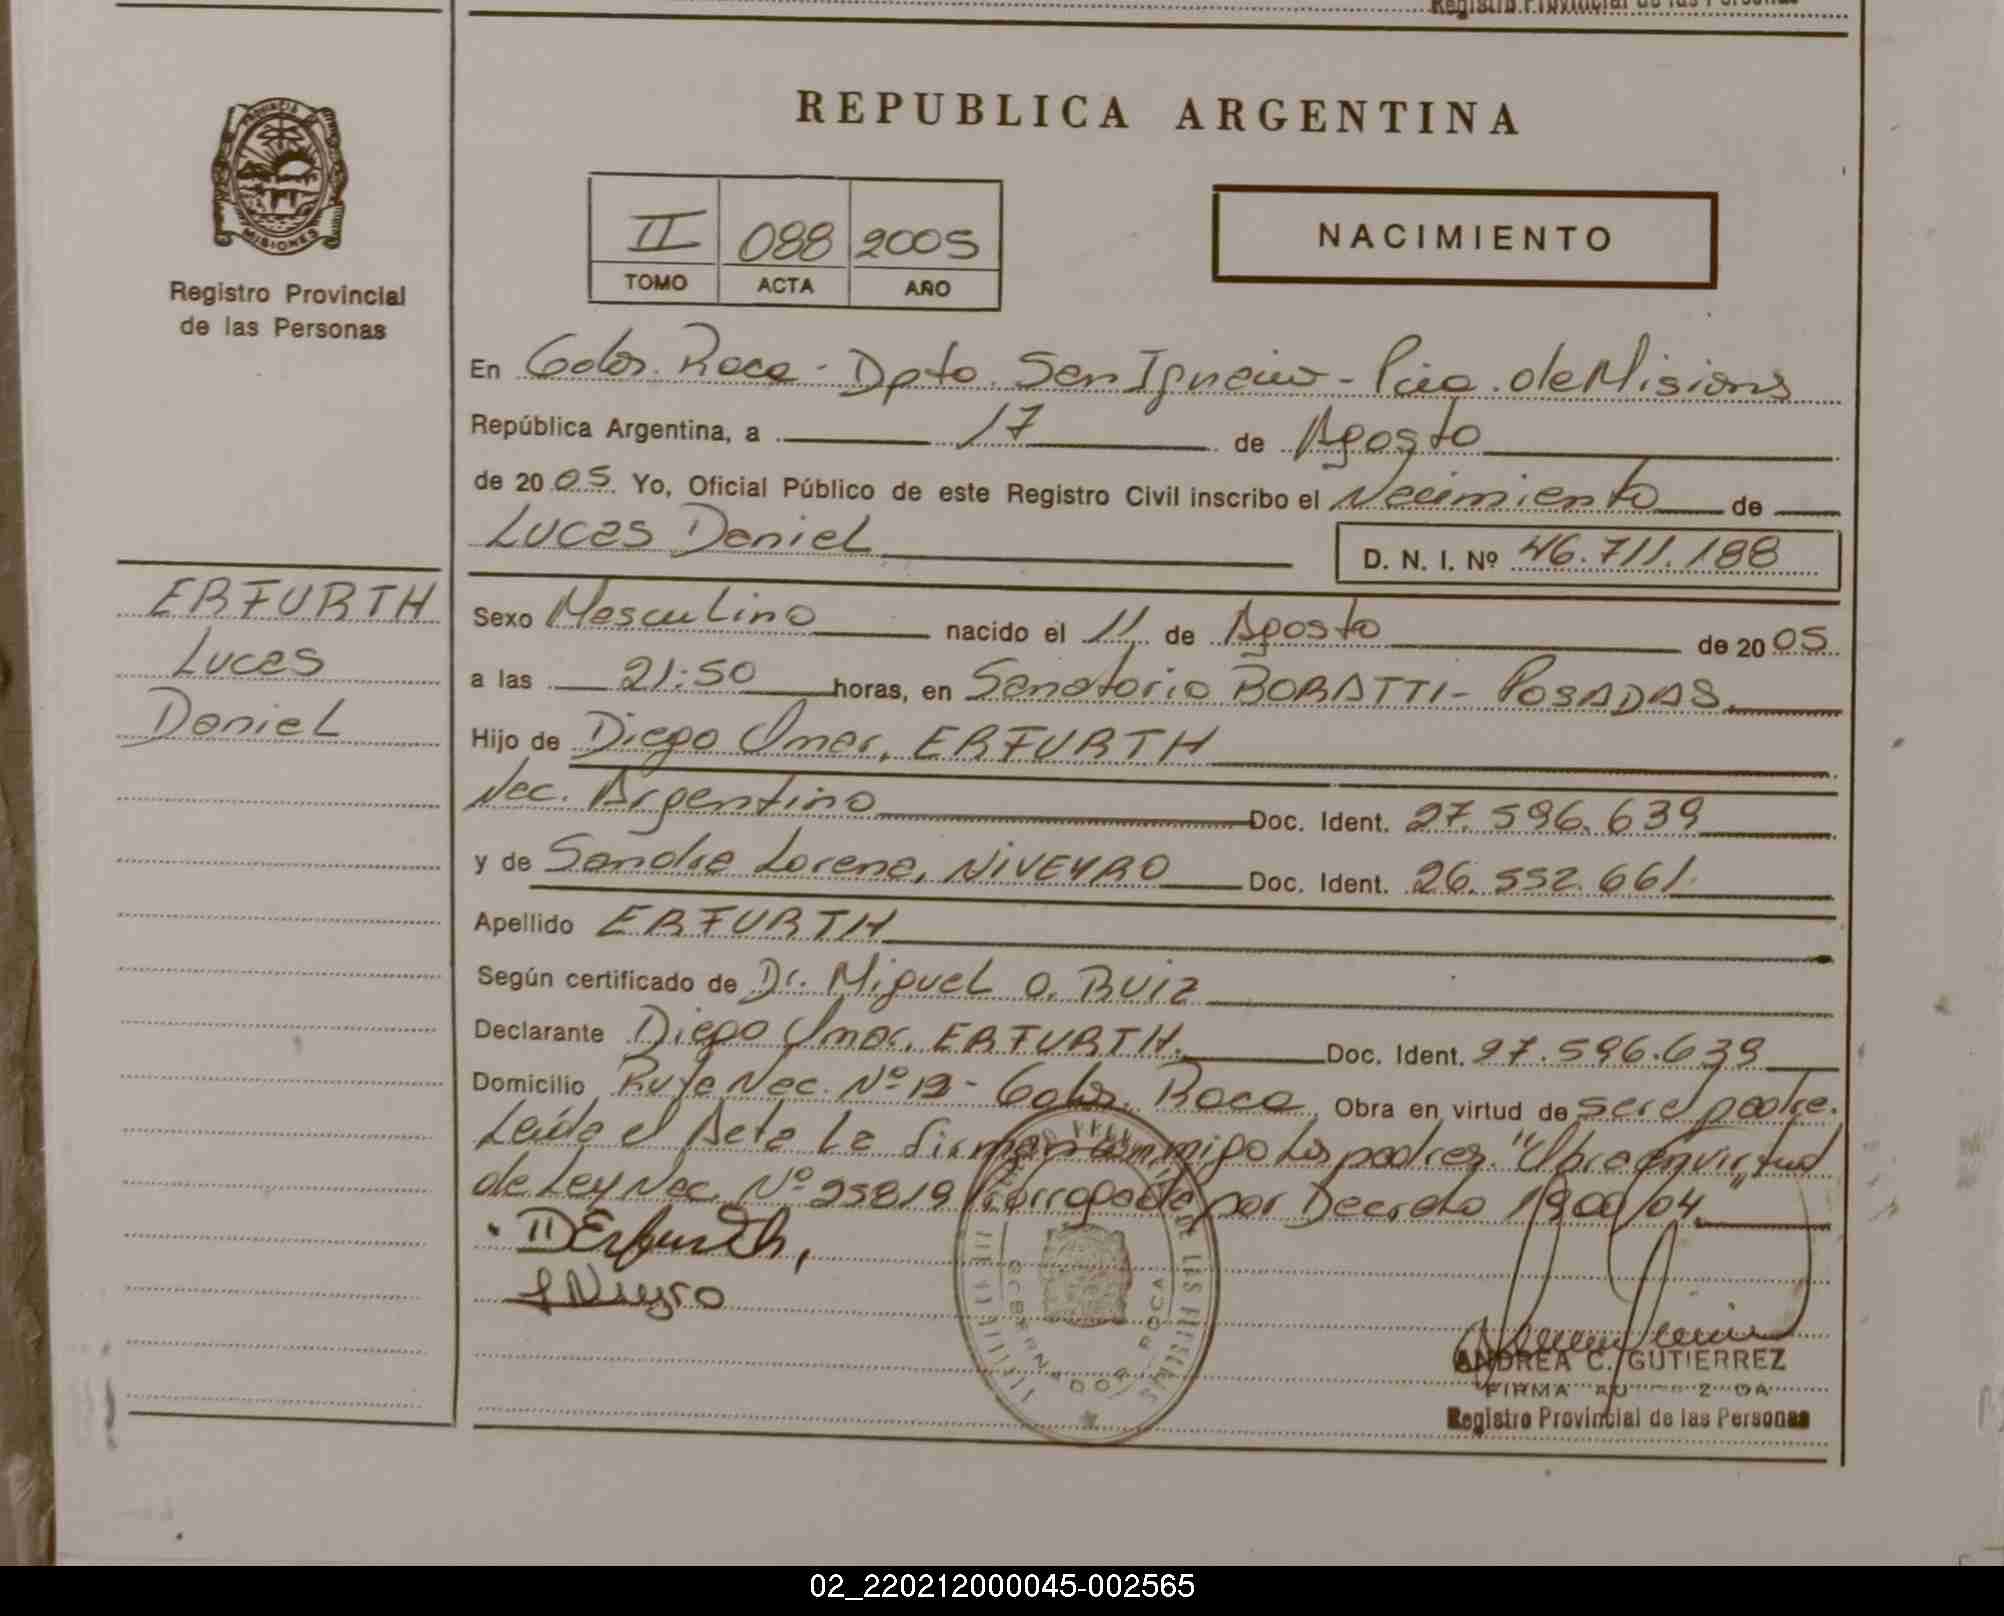 Registro Provincial de las Personas
PROVINCIA DE
MISIONES
Registro Provincial
de las Personas
REPUBLICA ARGENTINA
II 088 2005
TOMO ACTA AÑO
NACIMIENTO
En Gdor. Roca - Dpto. San Ignacio - Pcia. de Misiones
República Argentina, a 17 de Agosto
de 2005 Yo, Oficial Público de este Registro Civil inscribo el Nacimiento de
Lucas Daniel D. N. I. Nº 46.711.188
ERFURTH
Lucas
Daniel
Sexo Masculino nacido el 11 de Agosto de 2005
a las 21:50 horas, en Sanatorio BORATTI - POSADAS.
Hijo de Diego Omar, ERFURTH
Nac. Argentino Doc. Ident. 27.596.639
y de Sandra Lorena, NIVEYRO Doc. Ident. 26.552.661.
Apellido ERFURTH
Según certificado de Dr. Miguel O. Ruiz
Declarante Diego Omar, ERFURTH. Doc. Ident. 27.596.639
Domicilio Ruta Nac. Nº 12 - Gdor. Roca Obra en virtud de ser el padre.
Leída el Acta la firman conmigo los padres. "Obra en virtud
de Ley Nac. Nº 25819 Prorrogada por Decreto 1900/04"
DErfurth,
LNiveyro
GOBERNADOR ROCA
DE LAS PERSONAS
ANDREA C. GUTIERREZ
FIRMA
Registro Provincial de las Personas
02_220212000045-002565